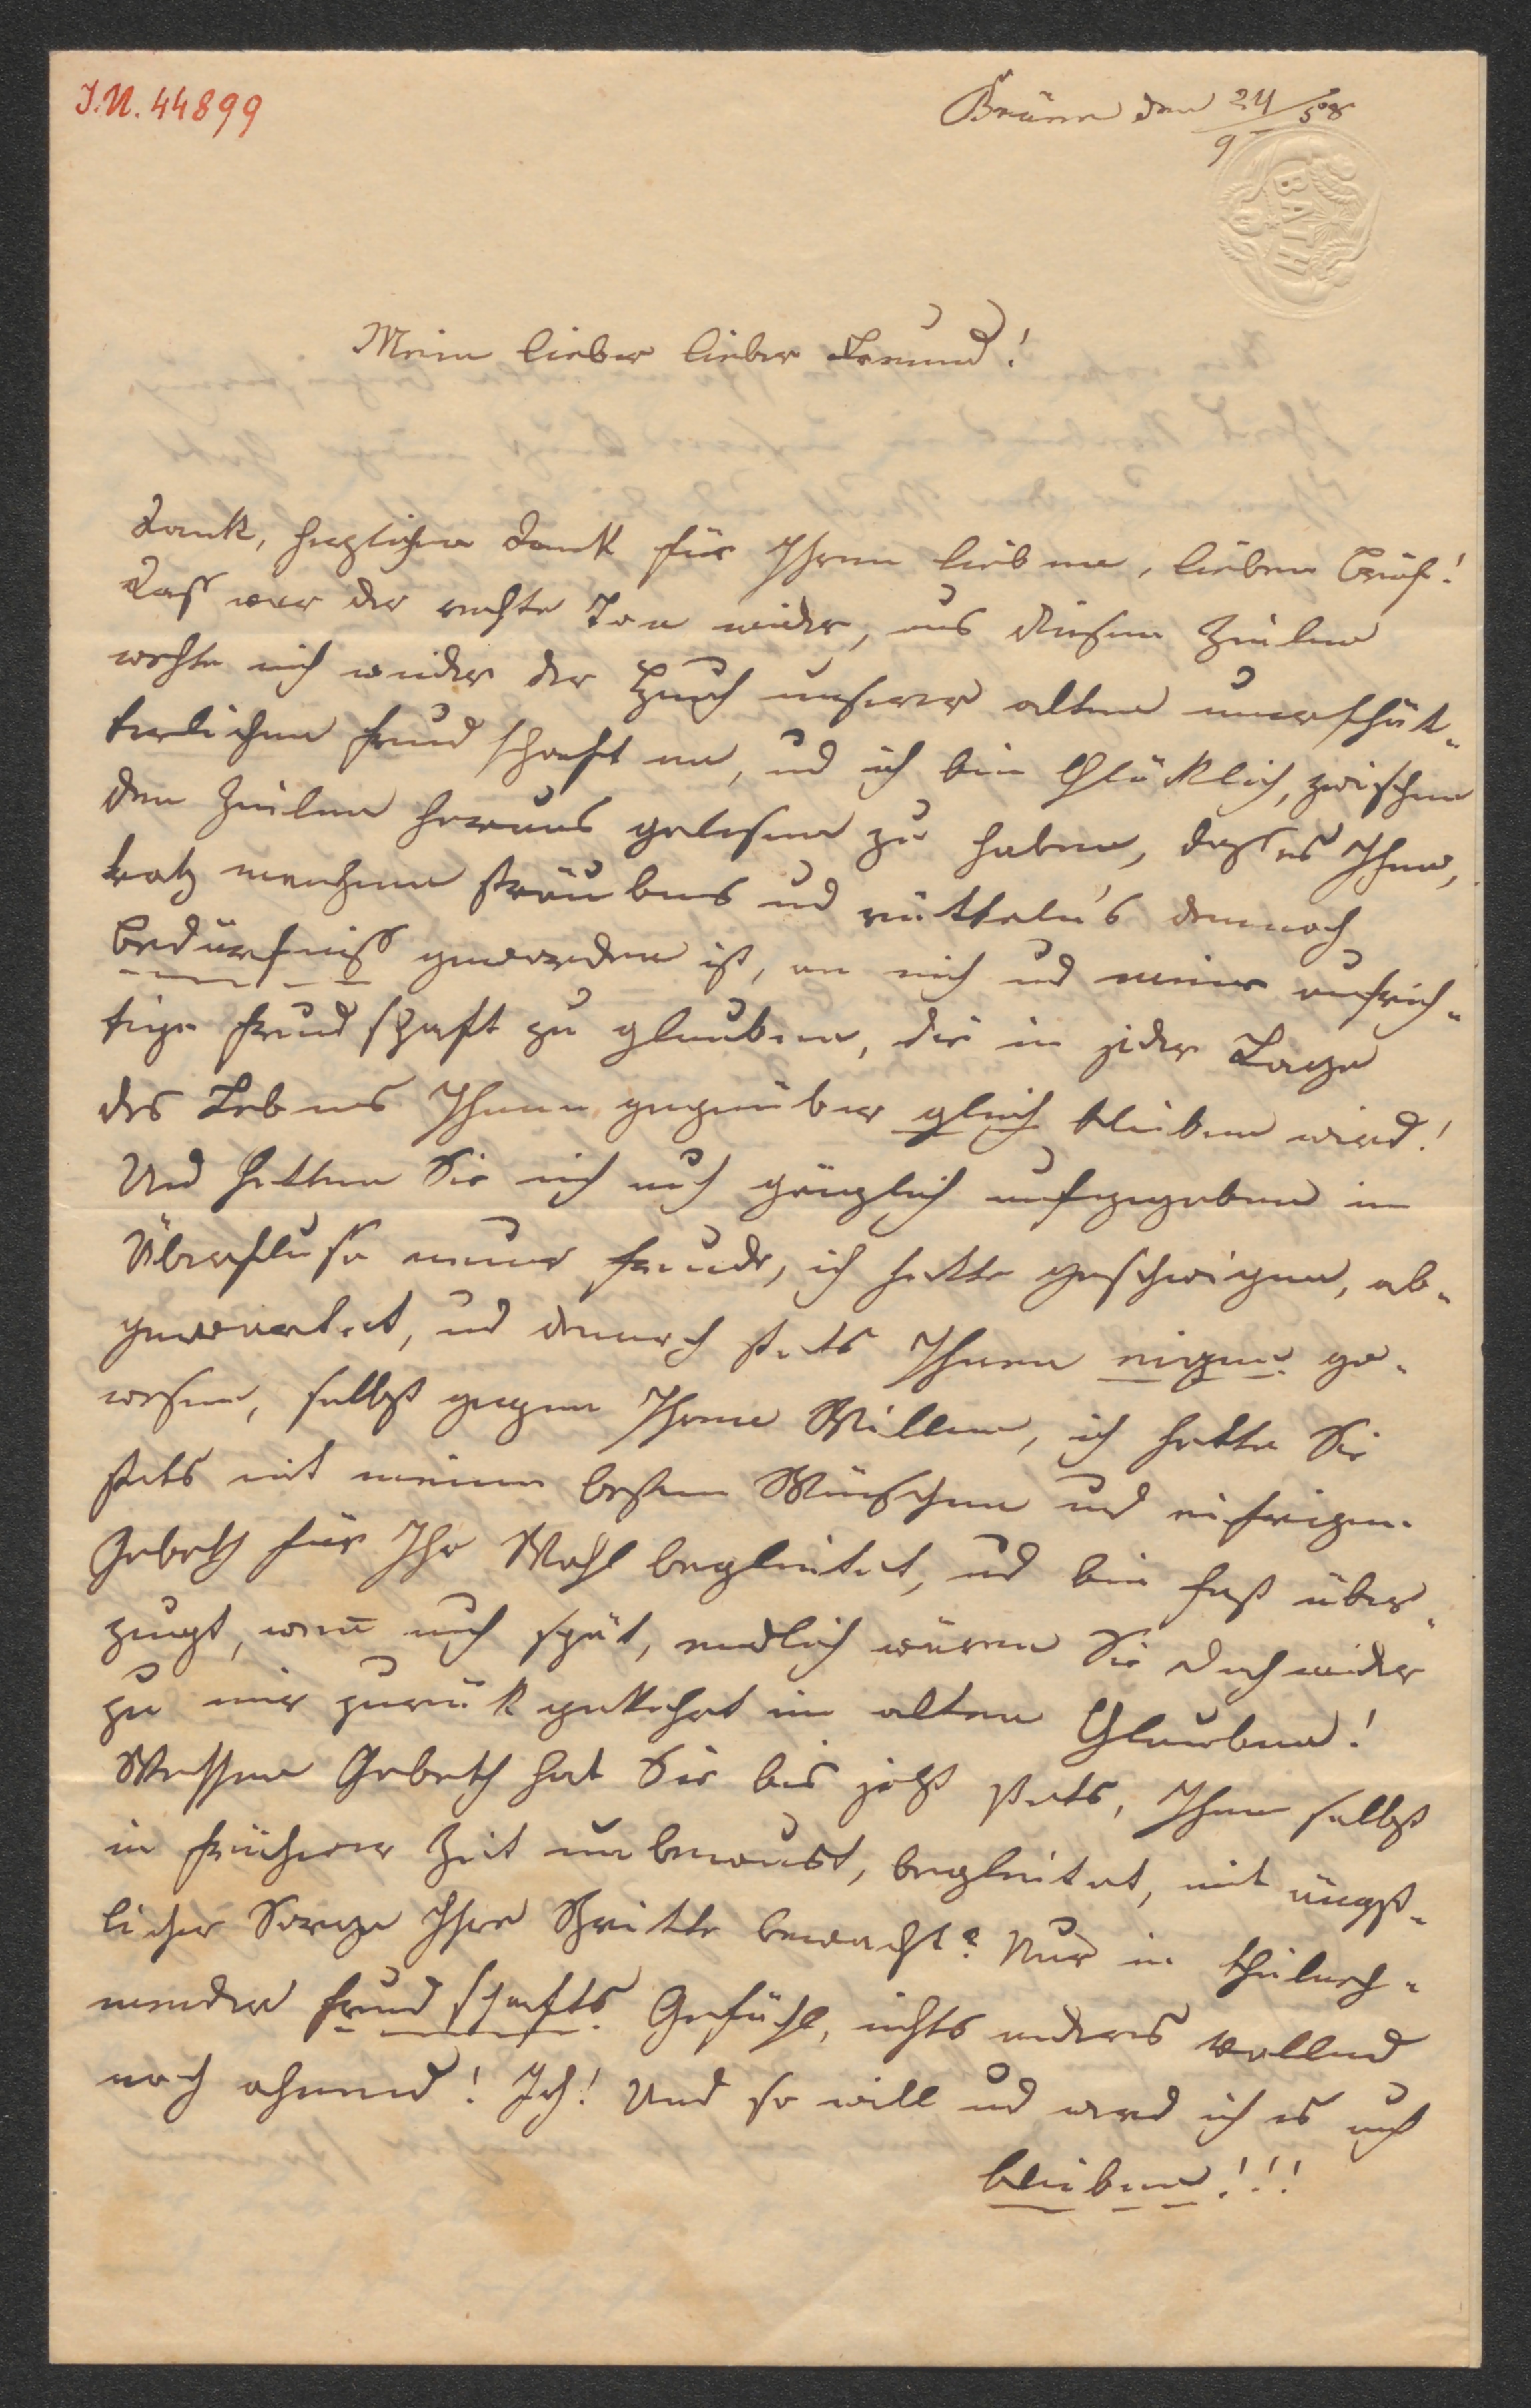 I.N. 44899
Brünn den 24/9 508
BATH
Mein lieber lieber Freund!
Dank, herzlichen Dank für Ihren lieben, lieben Brief!
Daß war der rechte Ton wider, aus diesen Zeilen
wehte mich wieder der Hauch unserer alten unerschüt-
terlichen Freundschaft an, und ich bin Glücklich, zwischen
den Zeilen heraus gelesen zu haben, daß es Ihnen,
trotz manchem sträubens und rütteln's dennoch
Bedürfniß geworden ist, an mich und meine aufrich-
tige Freundschaft zu glauben, die in jeder Lage
des Lebens Ihnen gegenüber gleich bleiben wird!
Und hetten Sie mich auch gänzlich aufgegeben im
Überfluße neuer Freunde, ich hette geschwigen, ab-
gewartet, und dennoch stets Ihnen eigen ge-
wesen, selbst gegen Ihren Willen, ich hette Sie
stets mit meinen besten Wünschen und eifrigen
Gebeth für Ihr Wohl begleitet, und bin fest über-
zeugt, wen̄ auch spät, endlich wären Sie doch wider
zu mir zurük gekehrt im alten Glauben!
Wessen Gebeth hat Sie bis jetzt stets, Ihnen selbst
in früherer Zeit unbewust, begleitet, mit ängst-
licher Sorge Ihre Schritte bewacht? Nur in theilneh-
mender Freundschafts Gefühl, nichts anderes wollend
noch ahnend! Ich! Und so will und werd ich es auch
bleiben!!!